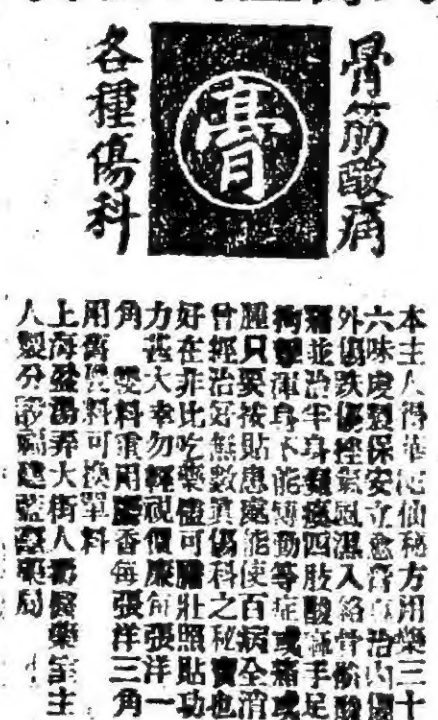 骨筋酸痛
膏
各種傷科
本主人得華陀仙秘方用藥三十
六味虔製保安立愈膏專治內傷
外傷跌傷挫氣風濕入絡骨節酸
痛並治半身癱瘓四肢酸麻手足
拘攣渾身不能轉動等症或箱或
腫只要按貼患處能使百病全消
曾經治好無數真傷科之秘寶也
好在非比吃藥儘可膽壯照貼功
力甚大幸勿輕視價廉每張洋一
角 雙料重用麝香每張洋三角
用舊雙料可換單料
上海盆湯弄大街人壽醫藥館主
人製分設蘇